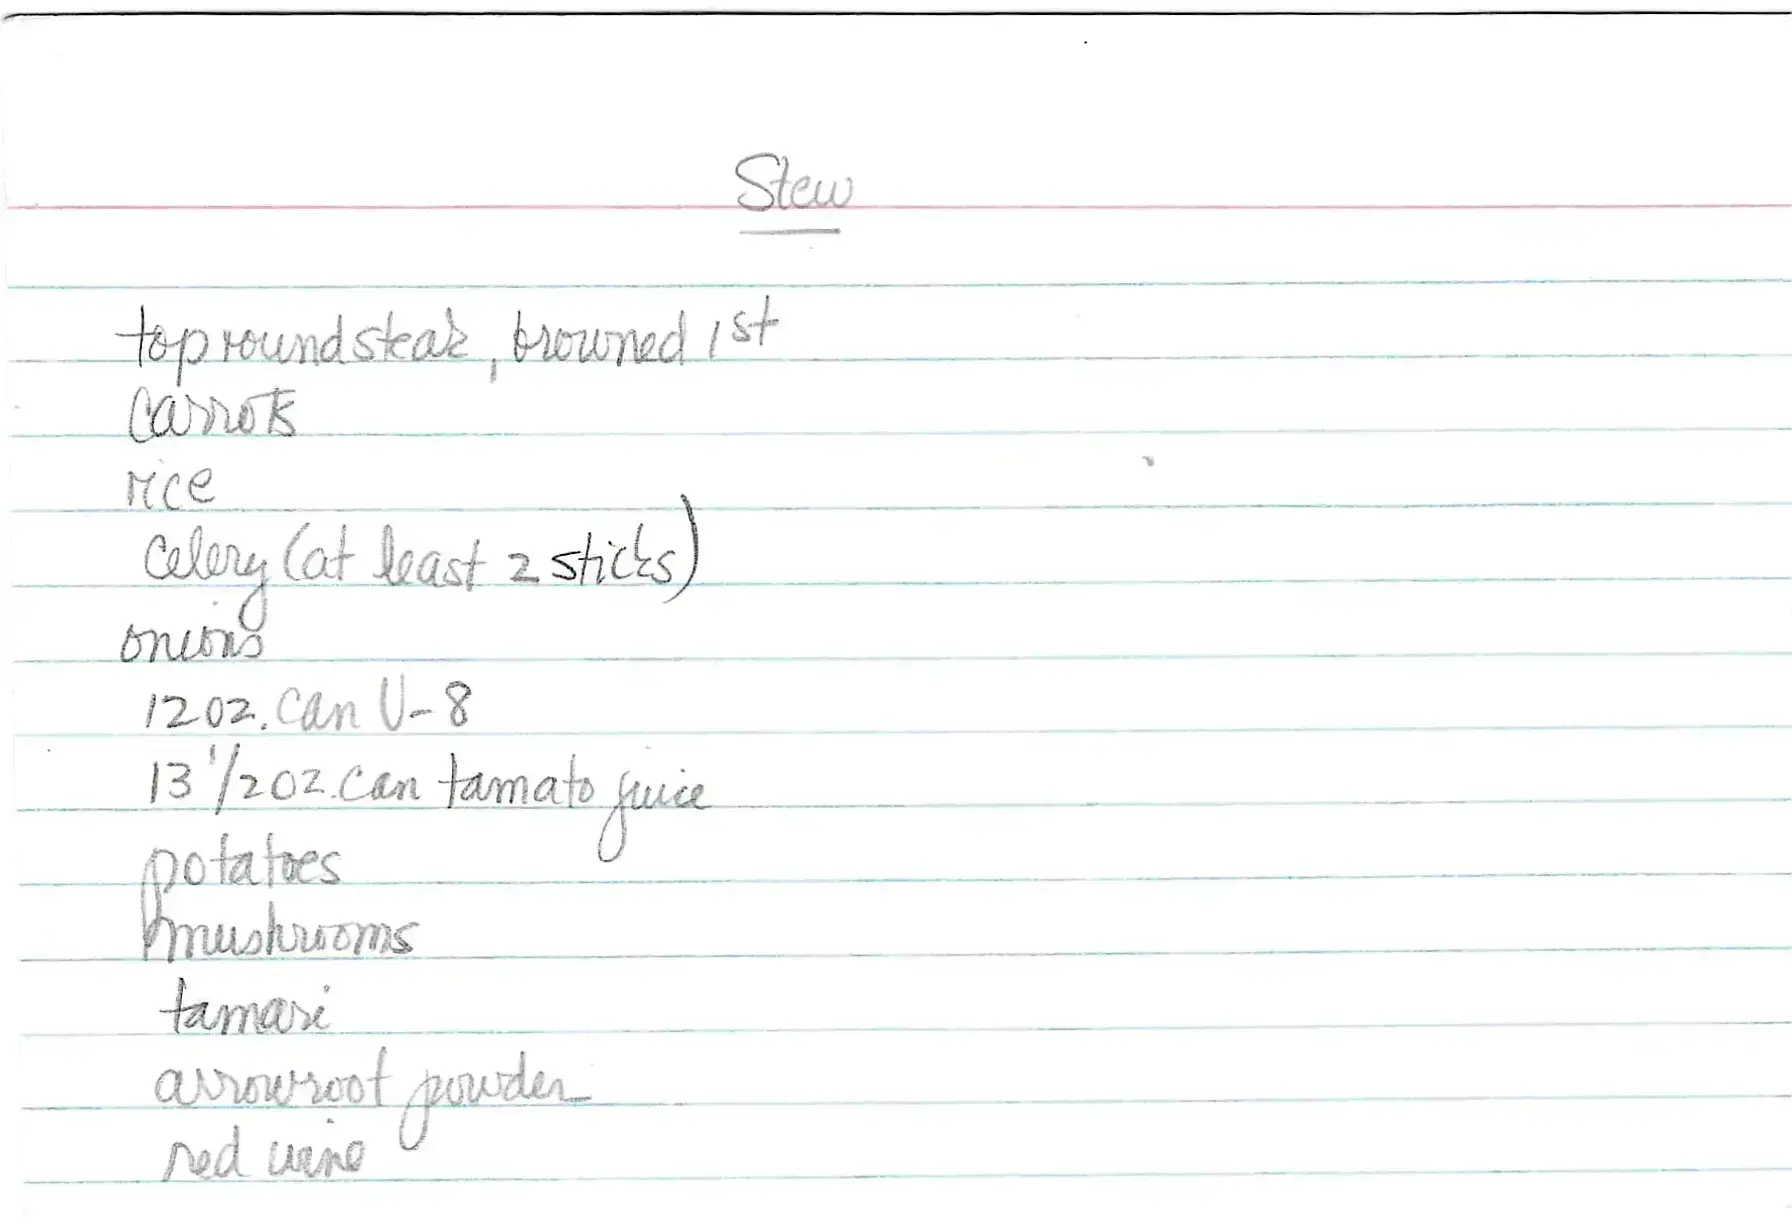 Stew
top round steak, browned 1st
carrots
rice
celery (at least 2 sticks)
onions
12 oz. can V-8
13 1/2 oz. can tamato juice
potatoes
mushrooms
tamari
arrowroot powder
red wine